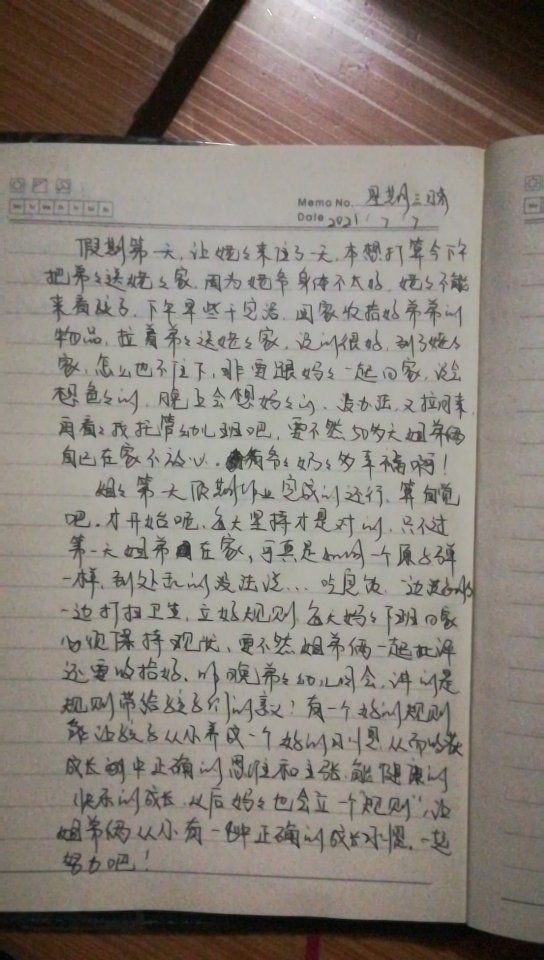 Memo No. 星期三 晴
Mo Tu We Th Fr Sa Su
Date 2021 / 7 / 7
假期第一天,让姥姥来住了一天,本想打算今下午
把弟弟送姥姥家,因为姥爷身体不太好,姥姥不能
来看孩子,下午早些干完活,回家收拾好弟弟的
物品,拉着弟弟送姥姥家,说的很好,到了姥姥
家,怎么也不住下,非要跟妈妈一起回家,说会
想爸爸的,晚上会想妈妈的,没办法,又拉回来,
再看看找托管幼儿班吧,要不然50多天姐弟俩
自己在家不放心。有爷爷奶奶多幸福啊!
姐姐第一天假期作业完成的还行,算自觉
吧,才开始呢,每天坚持才是对的,只不过
第一天姐弟在家,可真是如同一个原子弹
一样,到处乱的没法说...吃完饭,一边
一边打扫卫生,立好规则,每天妈妈下班回家
必须保持现状,要不然姐弟俩一起批评
还要收拾好,昨晚弟弟幼儿园会,讲的是
规则带给孩子们的意义!有一个好的规则
能让孩子从小养成一个好的习惯,从而
成长中正确的思维和主张,能健康的
快乐的成长,以后妈妈也会立一个“规则”,让
姐弟俩从小有一种正确的成长习惯,一起
努力吧!